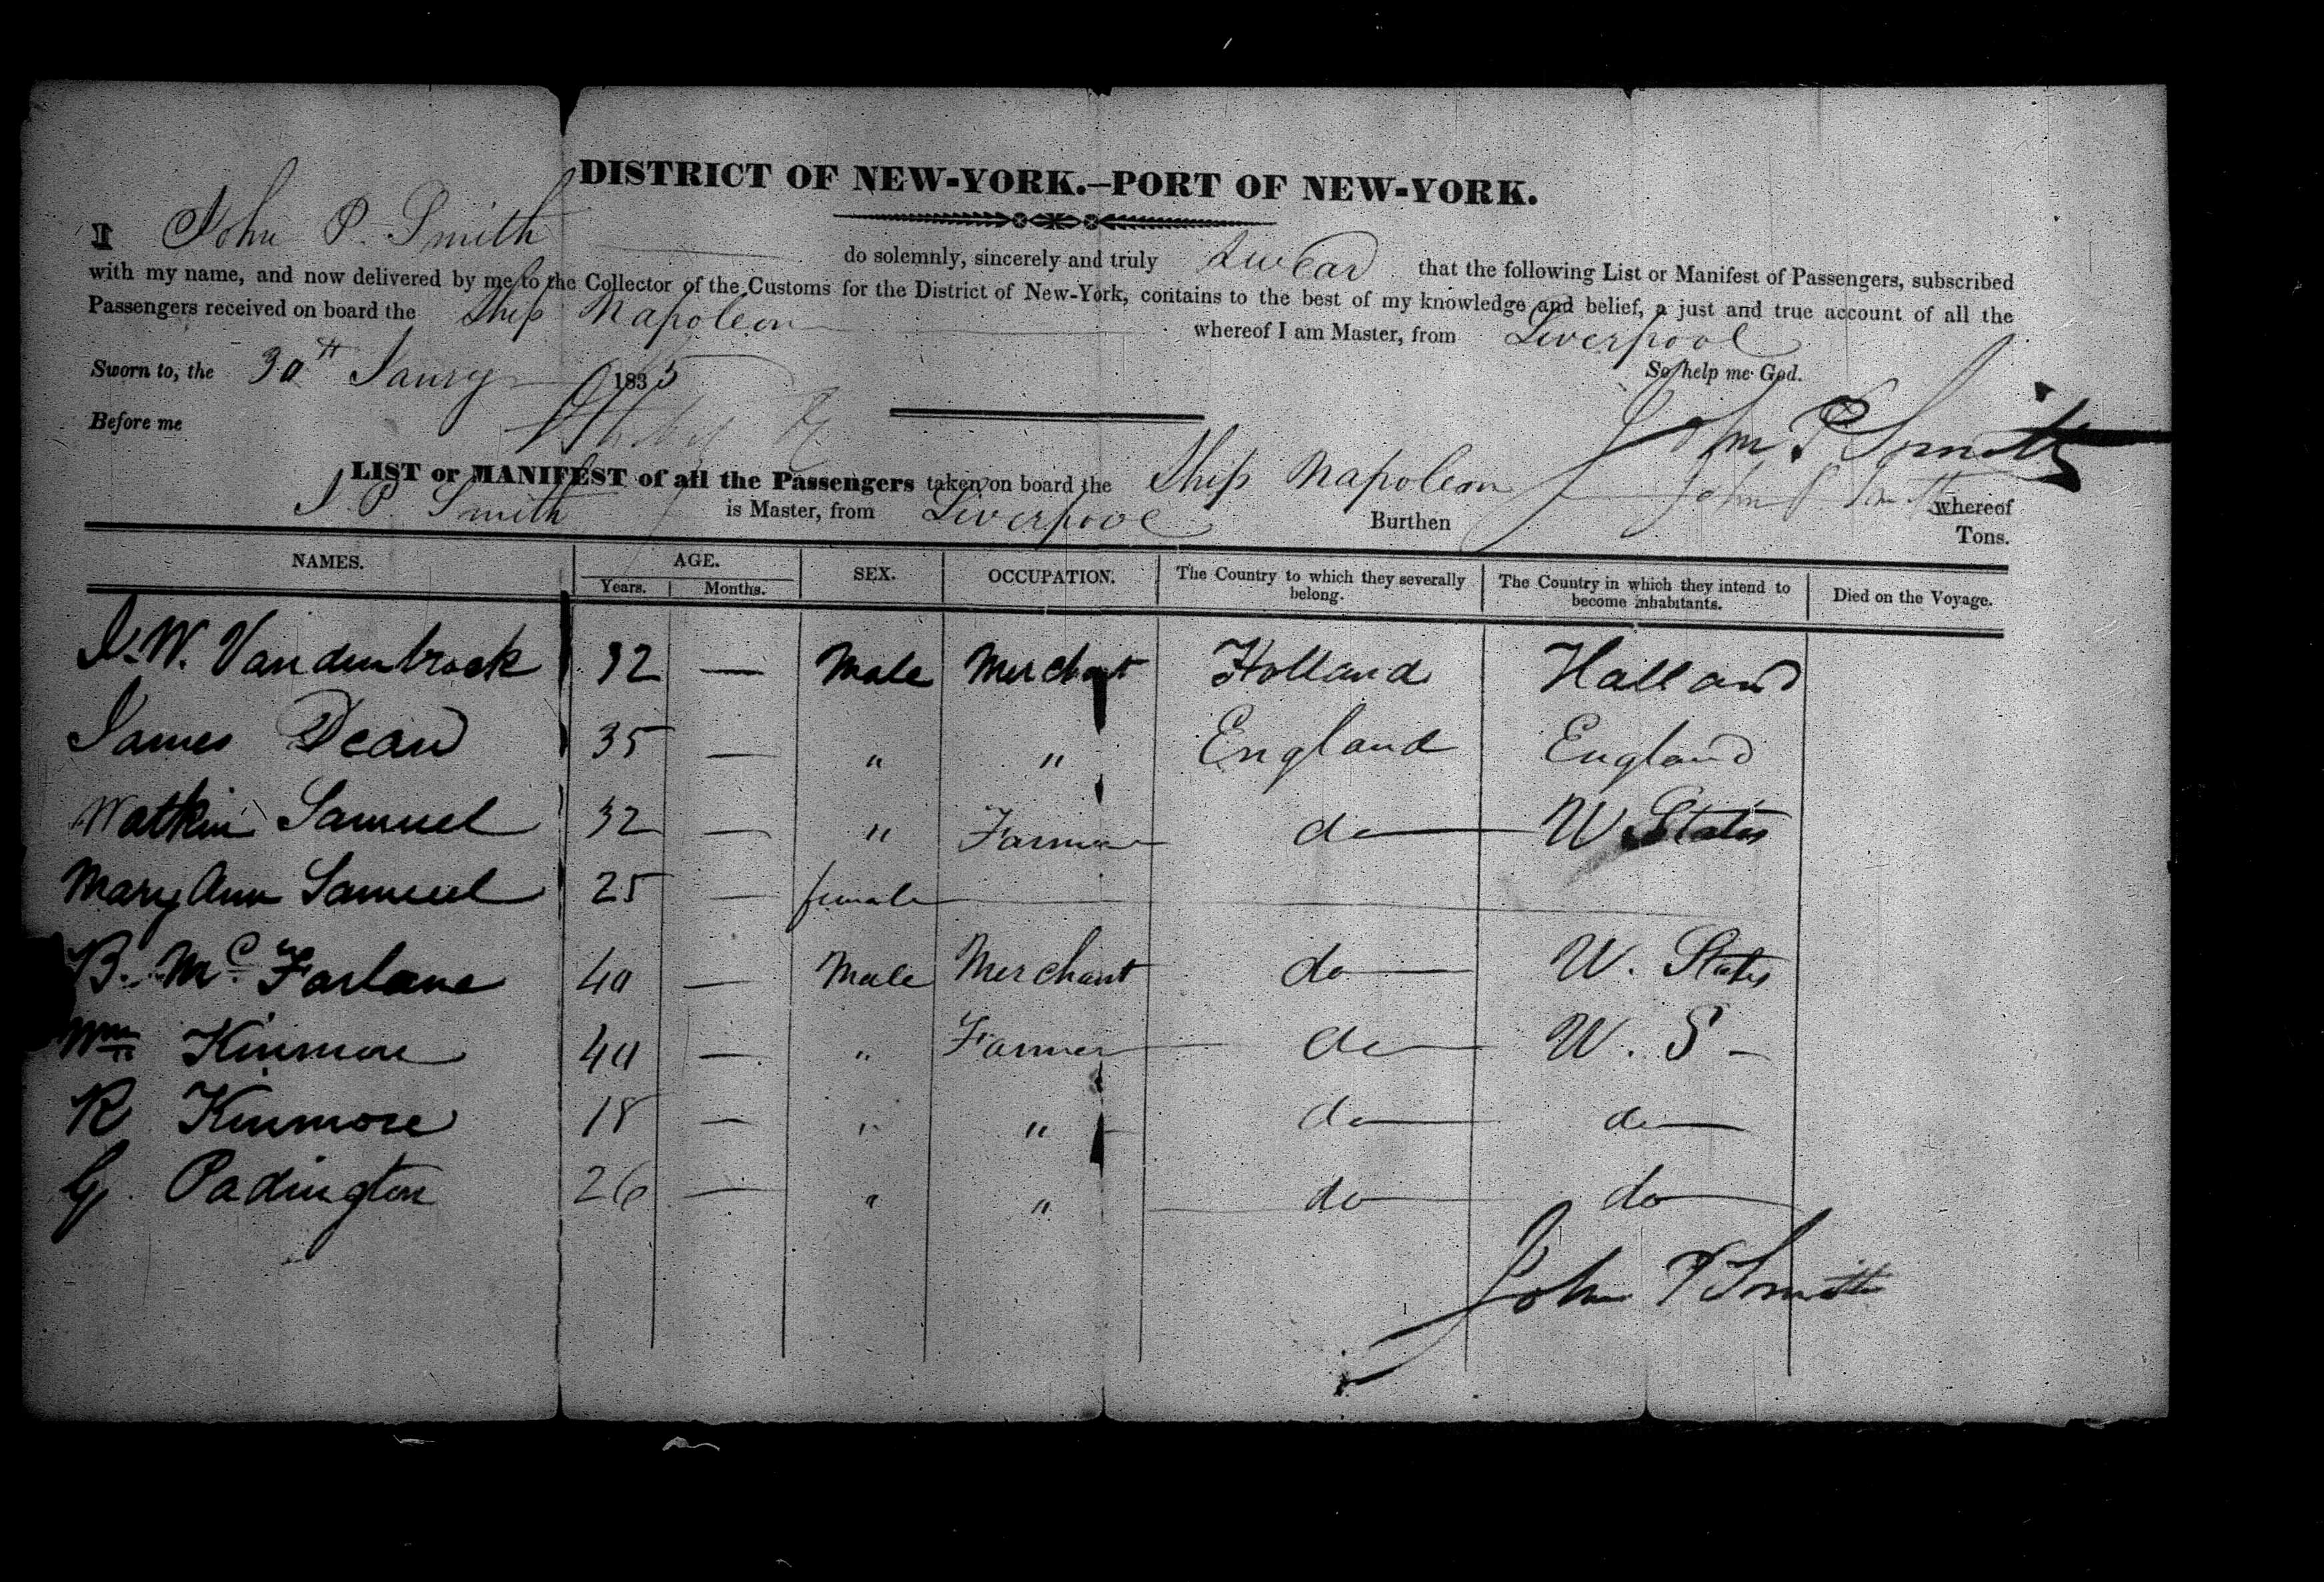 DISTRICT OF NEW-YORK.–PORT OF NEW-YORK.
I John P. Smith do solemnly, sincerely and truly swear that the following List or Manifest of Passengers, subscribed
with my name, and now delivered by me to the Collector of the Customs for the District of New-York, contains to the best of my knowledge and belief, a just and true account of all the
Passengers received on board the Ship Napoleon whereof I am Master, from Liverpool
Sworn to, the 30th Janry 1835 So help me God.
Before me John P Smith
LIST or MANIFEST of all the Passengers taken on board the Ship Napoleon John P Smith whereof
J. P. Smith is Master, from Liverpool Burthen Tons.
NAMES. AGE. SEX. OCCUPATION. The Country to which they severally belong. The Country in which they intend to become inhabitants. Died on the Voyage.
Years. Months.
J. W. Vandenbrock 32 — Male Merchant Holland Holland
James Dean 35 — " " England England
Watkin Samuel 32 — " Farmer do U States
Mary Ann Samuel 25 — female
B. McFarlane 40 — Male Merchant do U. States
Wm Kinmore 40 — " Farmer do U. S –
R Kinmore 18 — " " do do
G. Padington 26 — " " do do
John P Smith